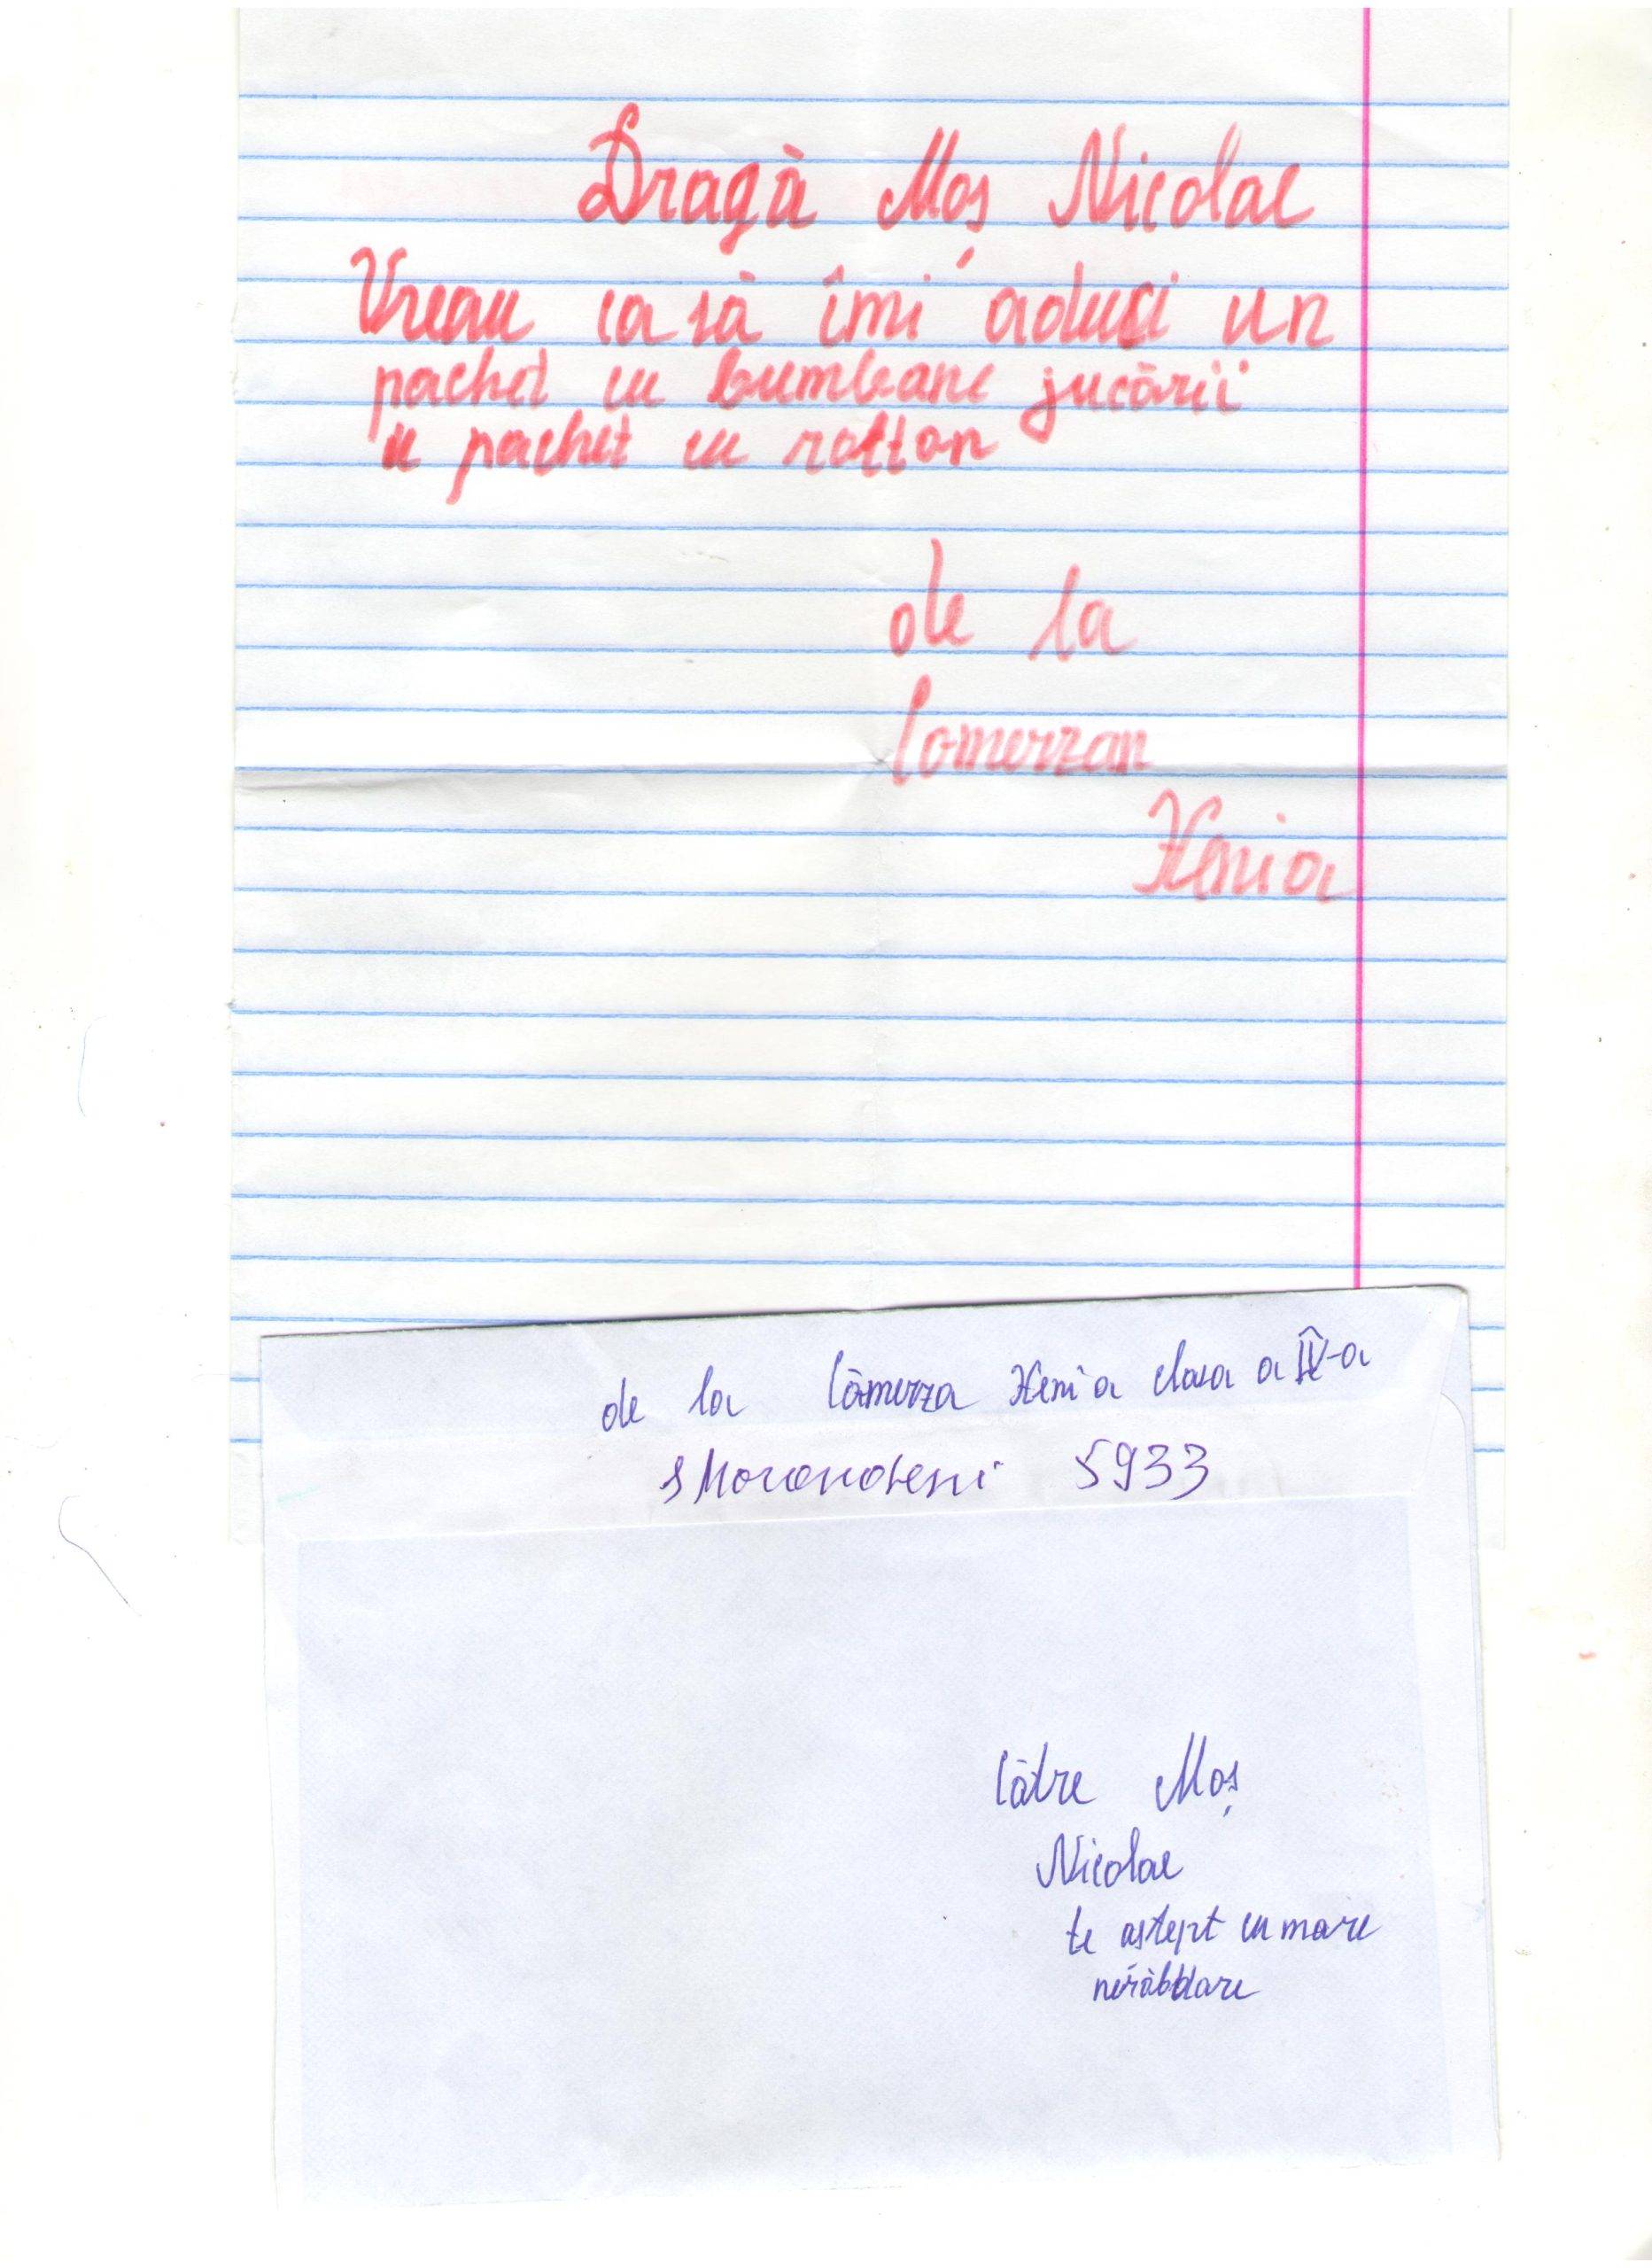 Dragă Moș Nicolae
Vreau ca să îmi aduci un
pachet cu bumbane jucării
u pachet cu rolton
de la
Camerzan
Xenia
de la Cămerza Xenia clasa a IV-a
s Morăndeni 5933
Către Moș
Nicolae
te aștept cu mare
nerăbdare